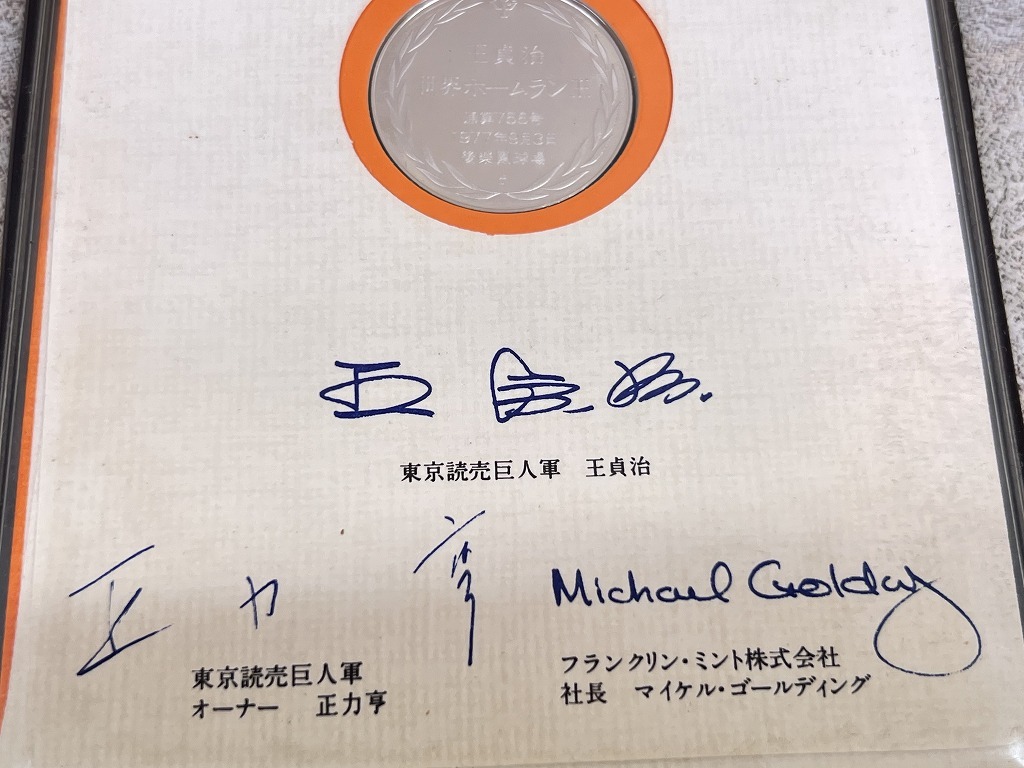 王貞治
世界ホームラン王
通算756号
1977年9月3日
後楽園球場
王貞治
東京読売巨人軍 王貞治
正力亨
Michael Golding
東京読売巨人軍
オーナー 正力亨
フランクリン・ミント株式会社
社長 マイケル・ゴールディング